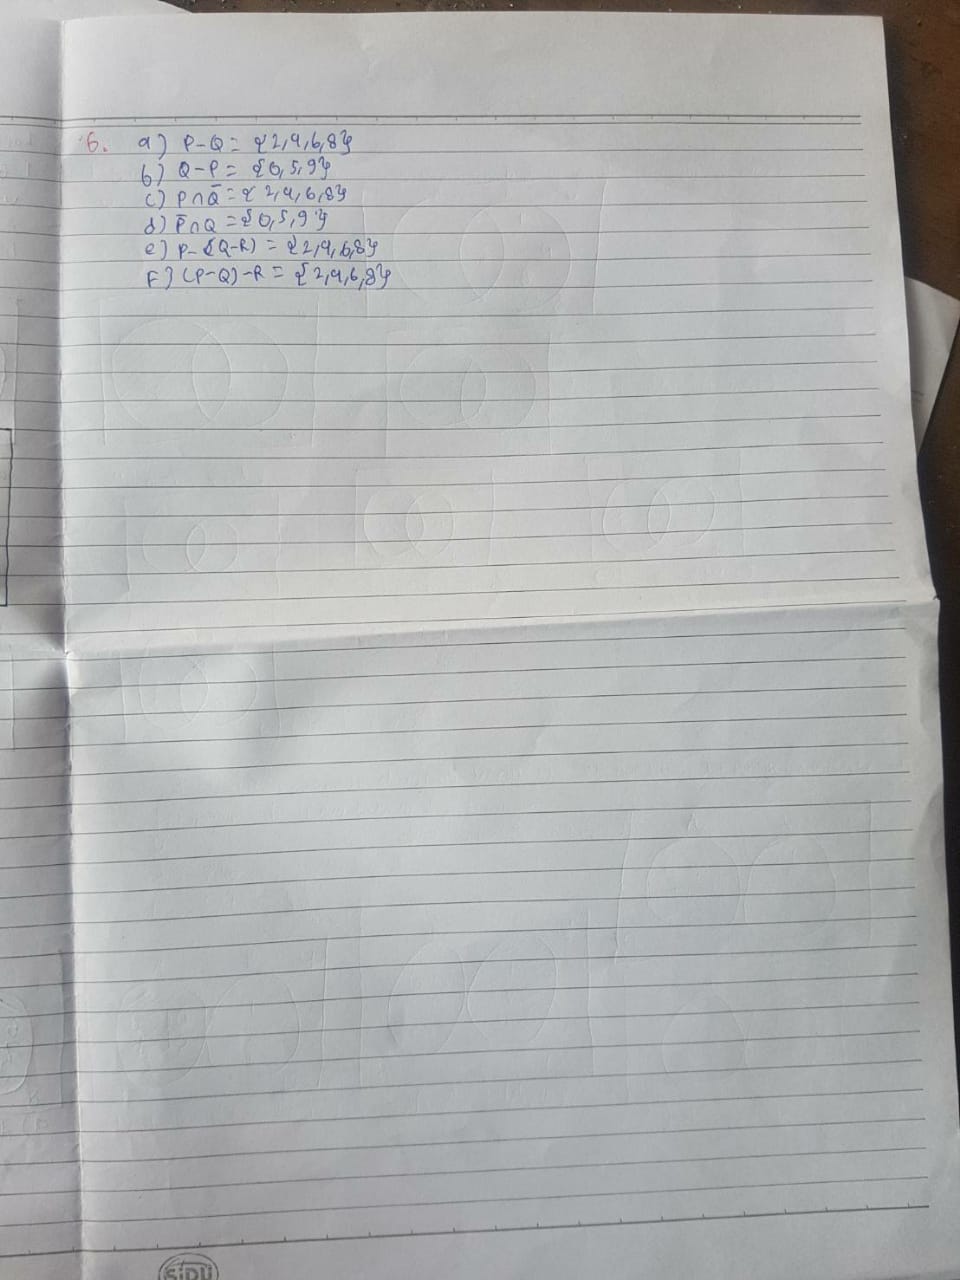 6. a) P-Q = {2,4,6,8}
b) Q-P = {0,5,9}
c) P∩Q̅ = {2,4,6,8}
d) P̅∩Q = {0,5,9}
e) P-(Q-R) = {2,4,6,8}
F) (P-Q)-R = {2,4,6,8}
SiDU